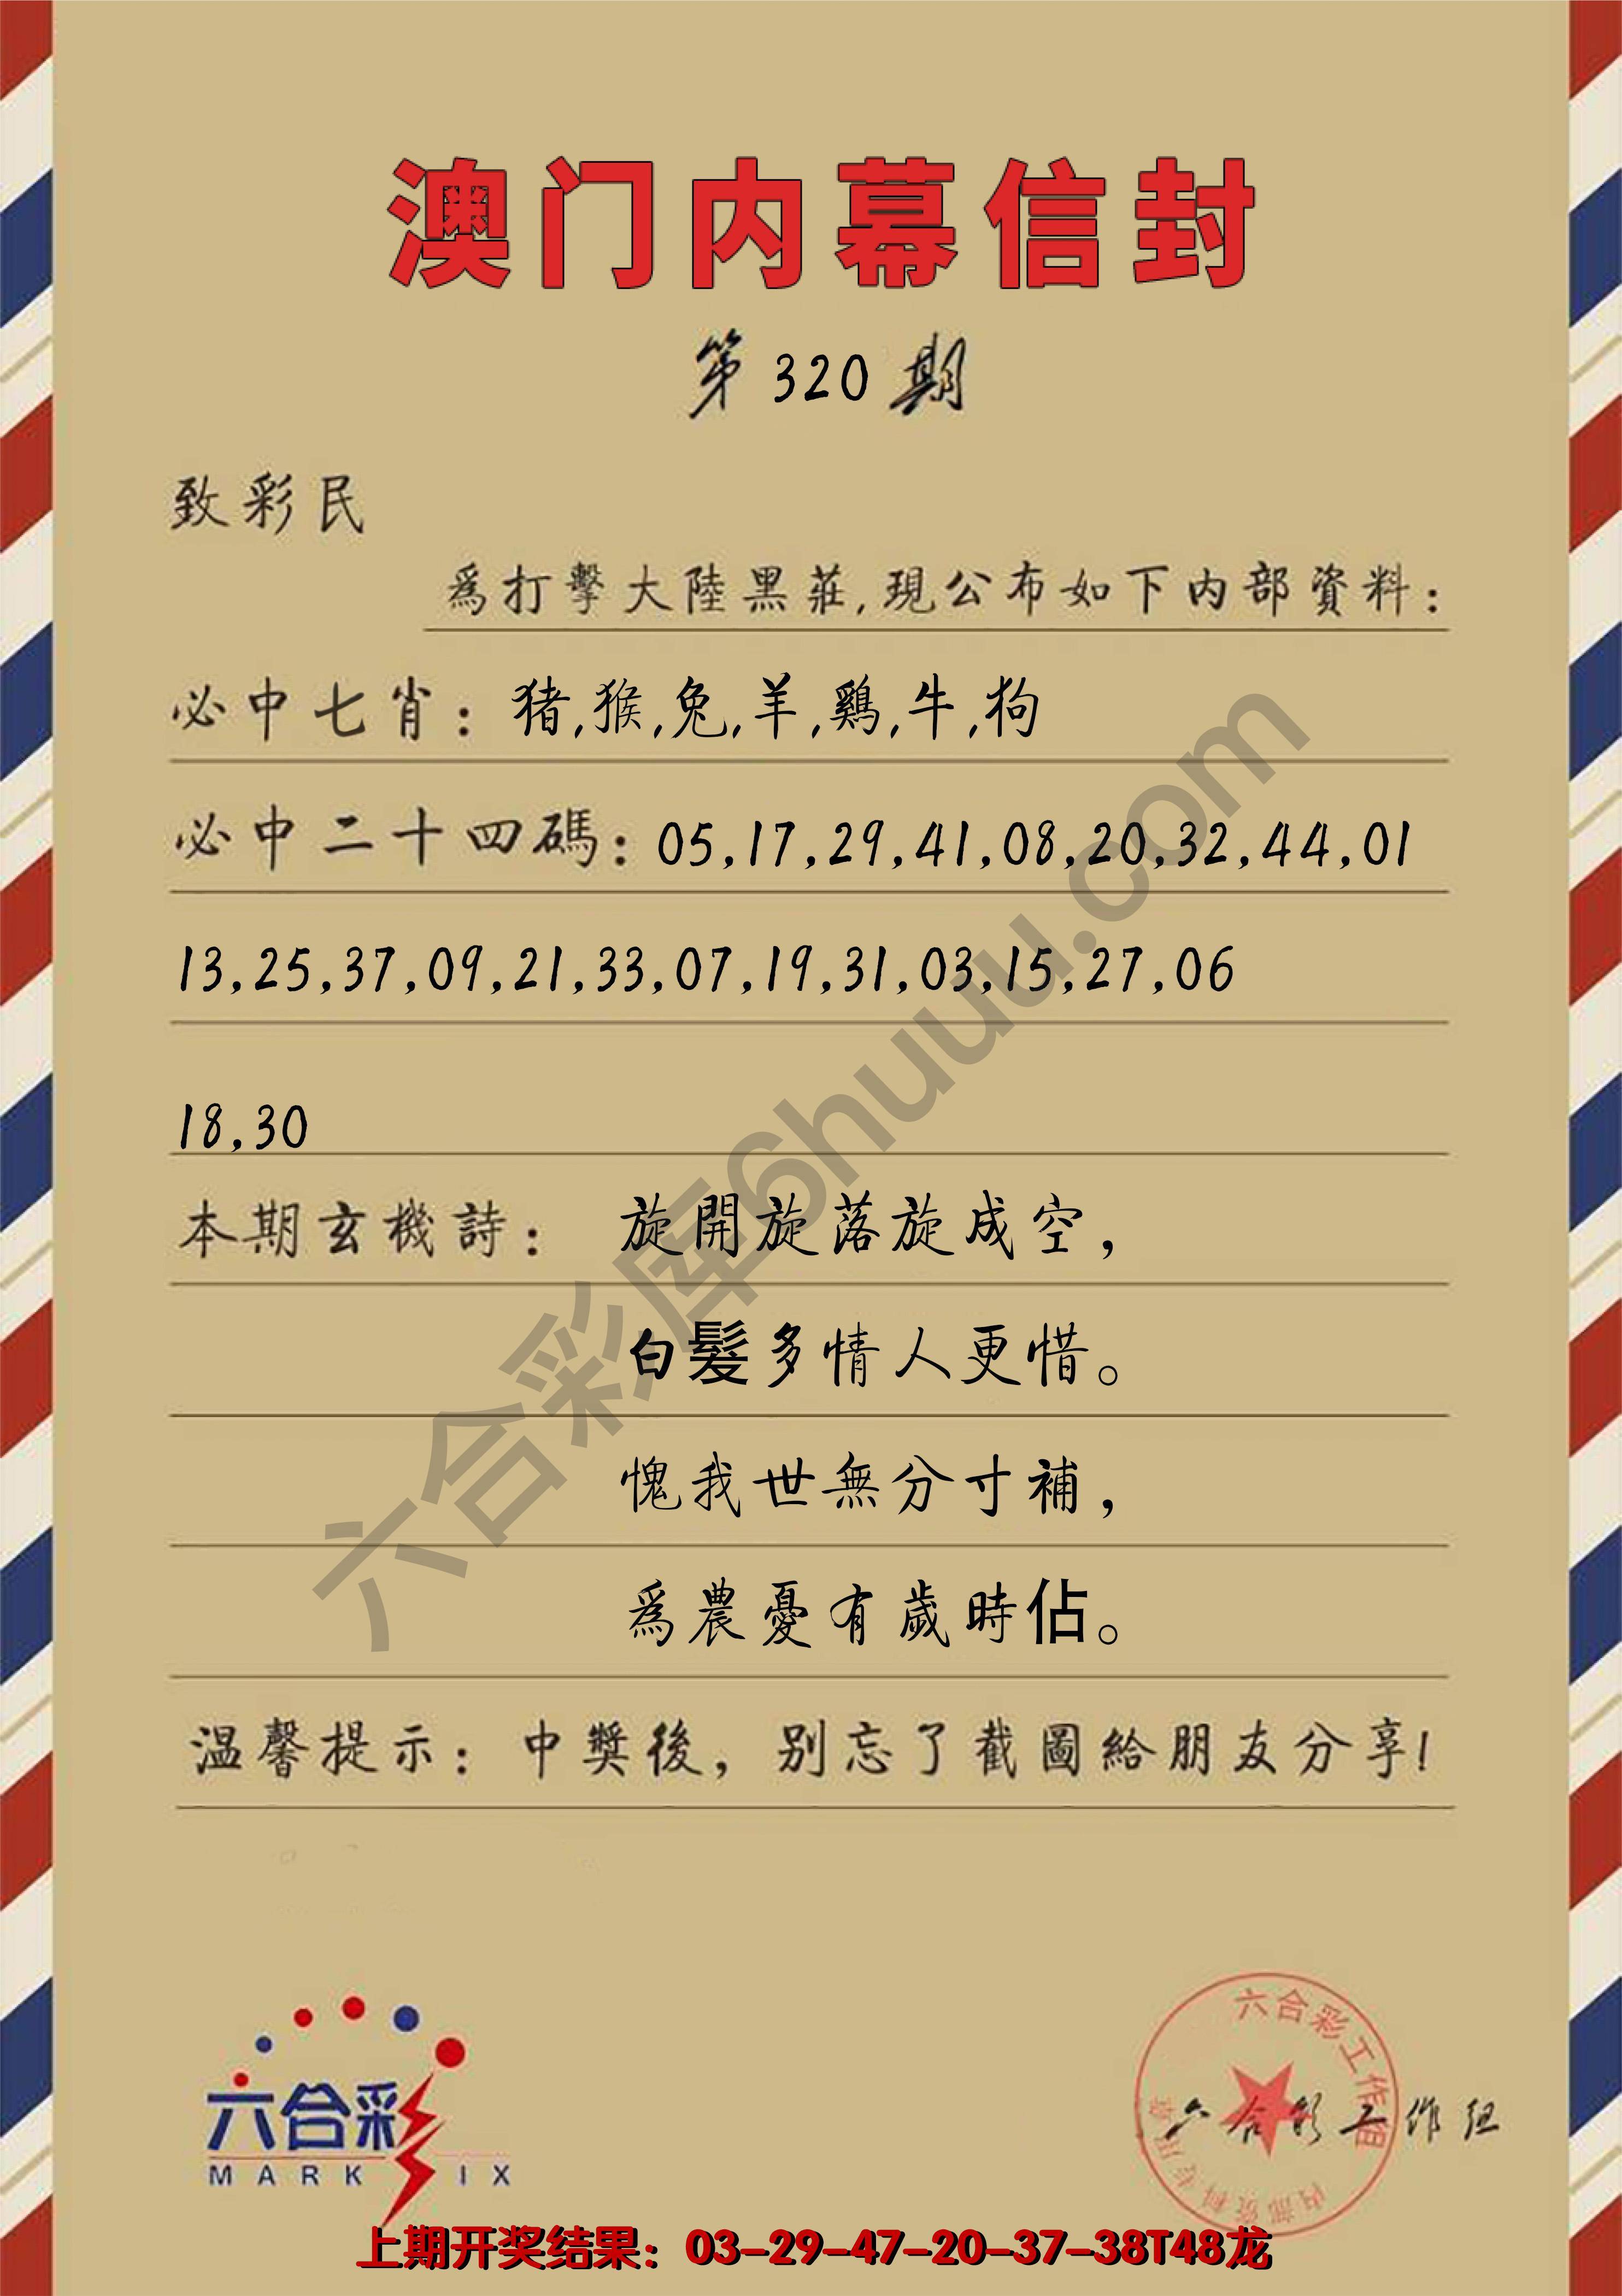 澳门内幕信封
第320期
致彩民
爲打擊大陸黑莊,現公布如下内部資料：
必中七肖：猪,猴,兔,羊,鷄,牛,狗
必中二十四碼：05,17,29,41,08,20,32,44,01
13,25,37,09,21,33,07,19,31,03,15,27,06
18,30
本期玄機詩：旋開旋落旋成空，
白髮多情人更惜。
愧我世無分寸補，
爲農憂有歲時佔。
温馨提示：中獎後，别忘了截圖給朋友分享!
六合彩库6huuu.com
六合彩
MARK SIX
六合彩工作组
内部资料专用章
六合彩工作组
上期开奖结果：03-29-47-20-37-38T48龙